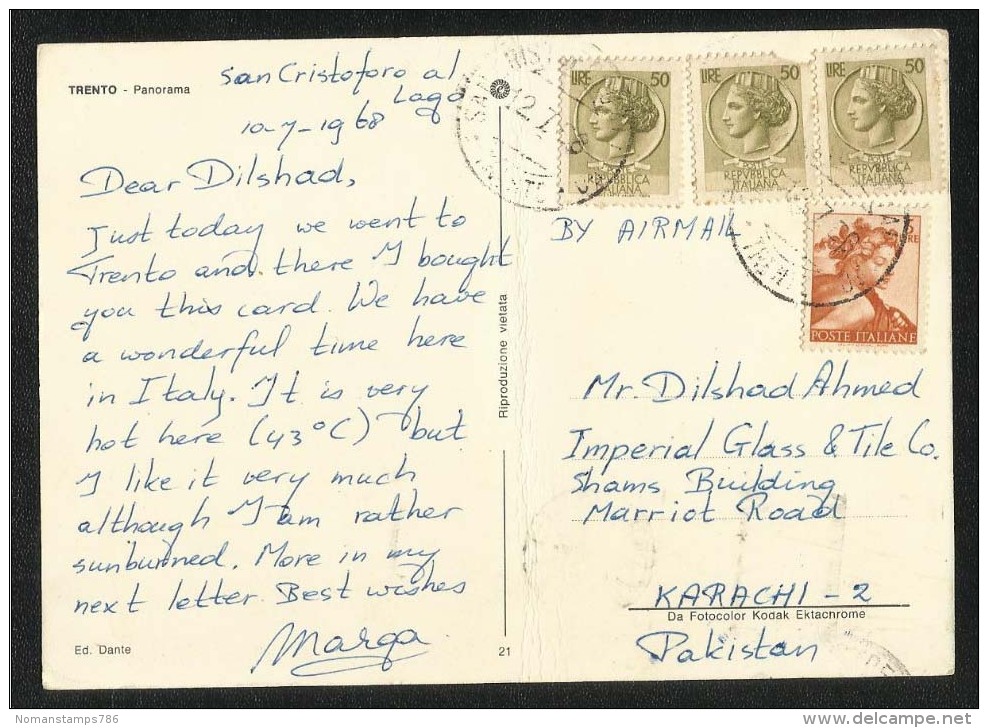 TRENTO - Panorama
San Cristoforo al
Lago
10-7-1968
Dear Dilshad,
Just today we went to
Trento and there I bought
you this card. We have
a wonderful time here
in Italy. It is very
hot here (43°C) but
I like it very much
although I am rather
sunburned. More in my
next letter. Best wishes
Marga
Ed. Dante
21
Riproduzione vietata
LIRE 50
REPVBBLICA
ITALIANA
LIRE 50
REPVBBLICA
ITALIANA
LIRE 50
REPVBBLICA
ITALIANA
POSTE ITALIANE
BY AIRMAIL
Mr. Dilshad Ahmed
Imperial Glass & Tile Co.
Shams Building
Marriot Road
KARACHI - 2
Da Fotocolor Kodak Ektachrome
Pakistan
Nomanstamps786
www.delcampe.net